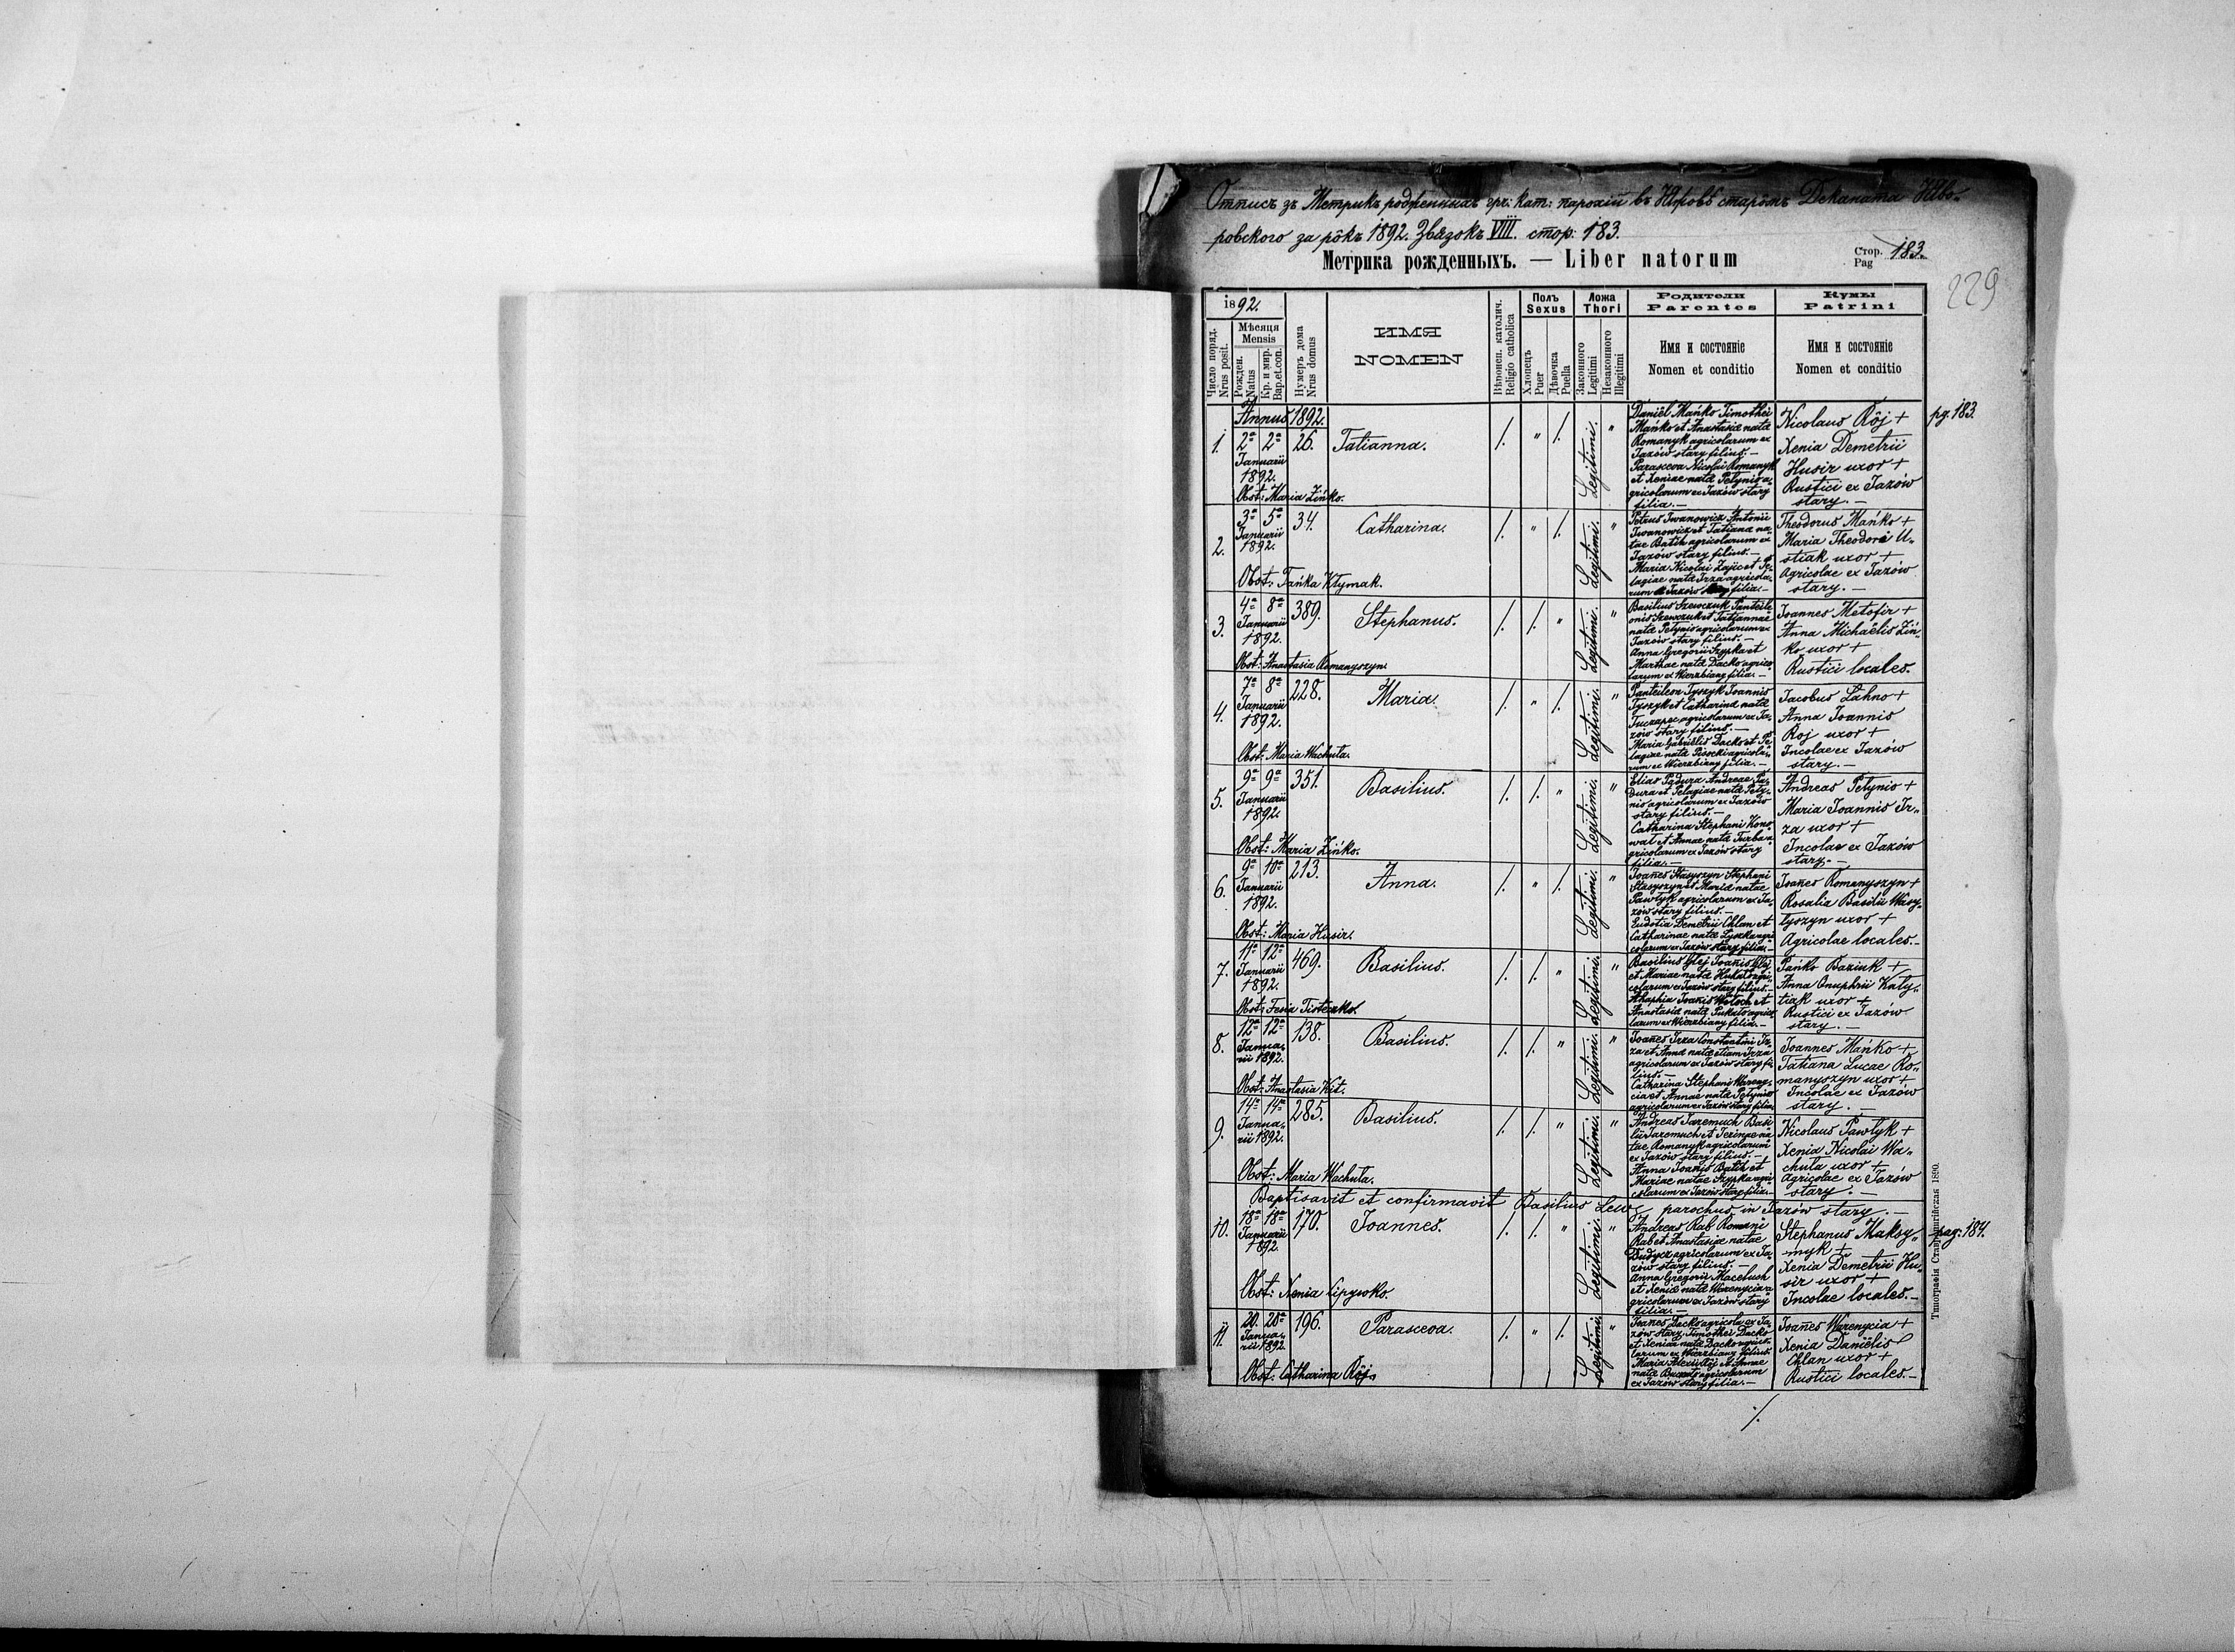 Отписъ зъ Метрикъ родженныхъ гр: кат: парохіи въ Язовѣ старôмъ Деканата Яво-
ровского за рôкъ 1892. Звязокъ VIII. стор: 183.
Метрика рожденныхъ. — Liber natorum
Стор. Pag 183.
229
1892.
Число поряд. Nrus posit.
Мѣсяця Mensis
Рожден. Natus
Кр. и мир. Bap.et.con.
Нумеръ дома Nrus domus
ИМЯ
NOMEN
Вѣроисп. католич. Religio catholica
Полъ Sexus
Хлопецъ Puer
Дѣвочка Puella
Ложа Thori
Законного Legitimi
Незаконного Illegitimi
Родители Parentes
Имя и состояніе
Nomen et conditio
Кумы Patrini
Имя и состояніе
Nomen et conditio
Annus 1892.
pg. 183.
1. 2a 2a Januarii 1892. 26. Tatianna. /. " /. Legitimi. "
Daniël Mańko Timothei
Mańko et Anastasiæ natæ
Romanyk agricolarum ex
Jazów stary filius. —
Parasceva Nicolai Romanyk
et Xeniae natæ Petynio a-
gricolarum ex Jazów stary
filia. —
Nicolaus Rôj +
Xenia Demetrii
Husir uxor +
Rustici ex Jazów
stary. —
Obst: Maria Zińko.
2. 3a 5a Januarii 1892. 34. Catharina. /. " /. Legitimi. "
Petrus Iwanowicz Antonii
Iwanowicz et Tatiana na-
tae Batih agricolarum ex
Jazów stary filius. —
Maria Nicolai Zajic et Pe-
lagiae natæ Irza agricola-
rum ex Jazów stary filia. —
Theodorus Mańko +
Maria Theodori U-
stiak uxor +
Agricolae ex Jazów
stary. —
Obst: Tańka Klymak.
3. 4a 8a Januarii 1892. 389. Stephanus. /. /. " Legitimi. "
Basilius Szewczuk Panteile-
onis Szewczuk et Tatiannae
natæ Petynio agricolarum ex
Jazów stary filius. —
Anna Gregorii Szypka et
Marthae natæ Dacko agrico-
larum ex Wierzbiany filia. —
Joannes Metofir +
Anna Michaëlis Ziń-
ko uxor +
Rustici locales.
Obst: Anastasia Romanyszyn.
4. 7a 8a Januarii 1892. 228. Maria. /. " /. Legitimi. "
Panteileon Tyszyk Joannis
Tyszyk et Catharinæ natæ
Tuczapec agricolarum ex Ja-
zów stary filius. —
Maria Gabriëlis Dacko et Pe-
lagiae natæ agricola-
rum ex Wierzbiany filia. —
Jacobus Lahno +
Anna Joannis
Roj uxor +
Incolae ex Jazów
stary. —
Obst: Maria Wachuta.
5. 9a 9a Januarii 1892. 351. Basilius. /. /. " Legitimi. "
Elias Padura Andreae Pa-
dura et Pelagiae natæ Pety-
nio agricolarum ex Jazów
stary filius. —
Catharina Stephani Kono-
wal et Annae natæ a-
gricolarum ex Jazów stary
filia. —
Andreas Petynio +
Maria Joannis Ir-
za uxor +
Incolae ex Jazów
stary. —
Obst: Maria Zińko.
6. 9a 10a Januarii 1892. 213. Anna. /. " /. Legitimi. "
Joañes Stasyszyn Stephani
Stasyszyn et Mariæ natae
Pawlyk agricolarum ex Ja-
zów stary filius. —
Eudotia Demetrii Chlan et
Catharinae natæ Lyszka agri-
colarum ex Jazów stary filia. —
Joañes Romanyszyn +
Rosalia Basilii Wasy-
lyszyn uxor +
Agricolae locales. —
Obst: Maria Husir.
7. 11a 12a Januarii 1892. 469. Basilius. /. /. " Legitimi. "
Basilius Glej Joañis Glej
et Mariae natæ agri-
colarum ex Jazów stary filius. —
Ahaphia Joañis Woloch et
Anastasiæ natæ agrico-
larum ex Wierzbiany filia. —
Pańko Baziuk +
Anna Onuphrii Katy-
tiak uxor +
Rustici ex Jazów
stary. —
Obst: Fesia Tisteczko.
8. 12a 12a Janua-
rii 1892. 138. Basilius. /. /. " Legitimi. "
Joañes Irza Constantini Ir-
za et Annæ natæ etiam Irza
agricolarum ex Jazów stary fi-
lius. —
Catharina Stephani Wareny-
cia et Annae natæ Petynio
agricolarum ex Jazów stary filia.
Joannes Mańko +
Tatiana Lucae Ro-
manyszyn uxor +
Incolae ex Jazów
stary. —
Obst: Anastasia Kit.
9. 14a 14a Janua-
rii 1892. 285. Basilius. /. /. " Legitimi. "
Andreas Jaremuch Basi-
lii Jaremuch et Irinae na-
tae Romanyk agricolarum
ex Jazów stary filius. —
Anna Joañis Batih et
Mariae natae Szypka agri-
colarum ex Jazów stary filia. —
Nicolaus Pawlyk +
Xenia Nicolai Wa-
chuta uxor +
Agricolae ex Jazów
stary. —
Obst: Maria Wachuta.
Baptisavit et confirmavit Basilius Lew, parochus in Jazów stary. —
10. 18a 18a Januarii 1892. 170. Joannes. /. /. " Legitimi. "
Andreas Rab Romani
Rab et Anastasiae natae
Budycz agricolarum ex Ja-
zów stary filius. —
Anna Gregorii Maceluch
et Xeniæ natæ Warenycia a-
gricolarum ex Jazów stary
filia. —
Stephanus Maksy-
myk +
Xenia Demetrii Hu-
sir uxor +
Incolae locales. —
pag. 184.
Obst: Xenia Cipywko.
11. 20. 20a Janua-
rii 1892. 196. Parasceva. /. " /. Legitimi. "
Joañes Dacko agricola ex Ja-
zów stary, Timothei Dacko
et Xeniae natæ Dacko agrico-
larum ex Wierzbiany filius
Maria Alexii Rôj et Annae
natæ agricolarum
ex Jazów stary filia. —
Joañes Warenycia +
Xenia Daniëlis
Chlan uxor +
Rustici locales. —
Obst: Catharina Rôj.
Типографія Ставропигійская 1890.
/.